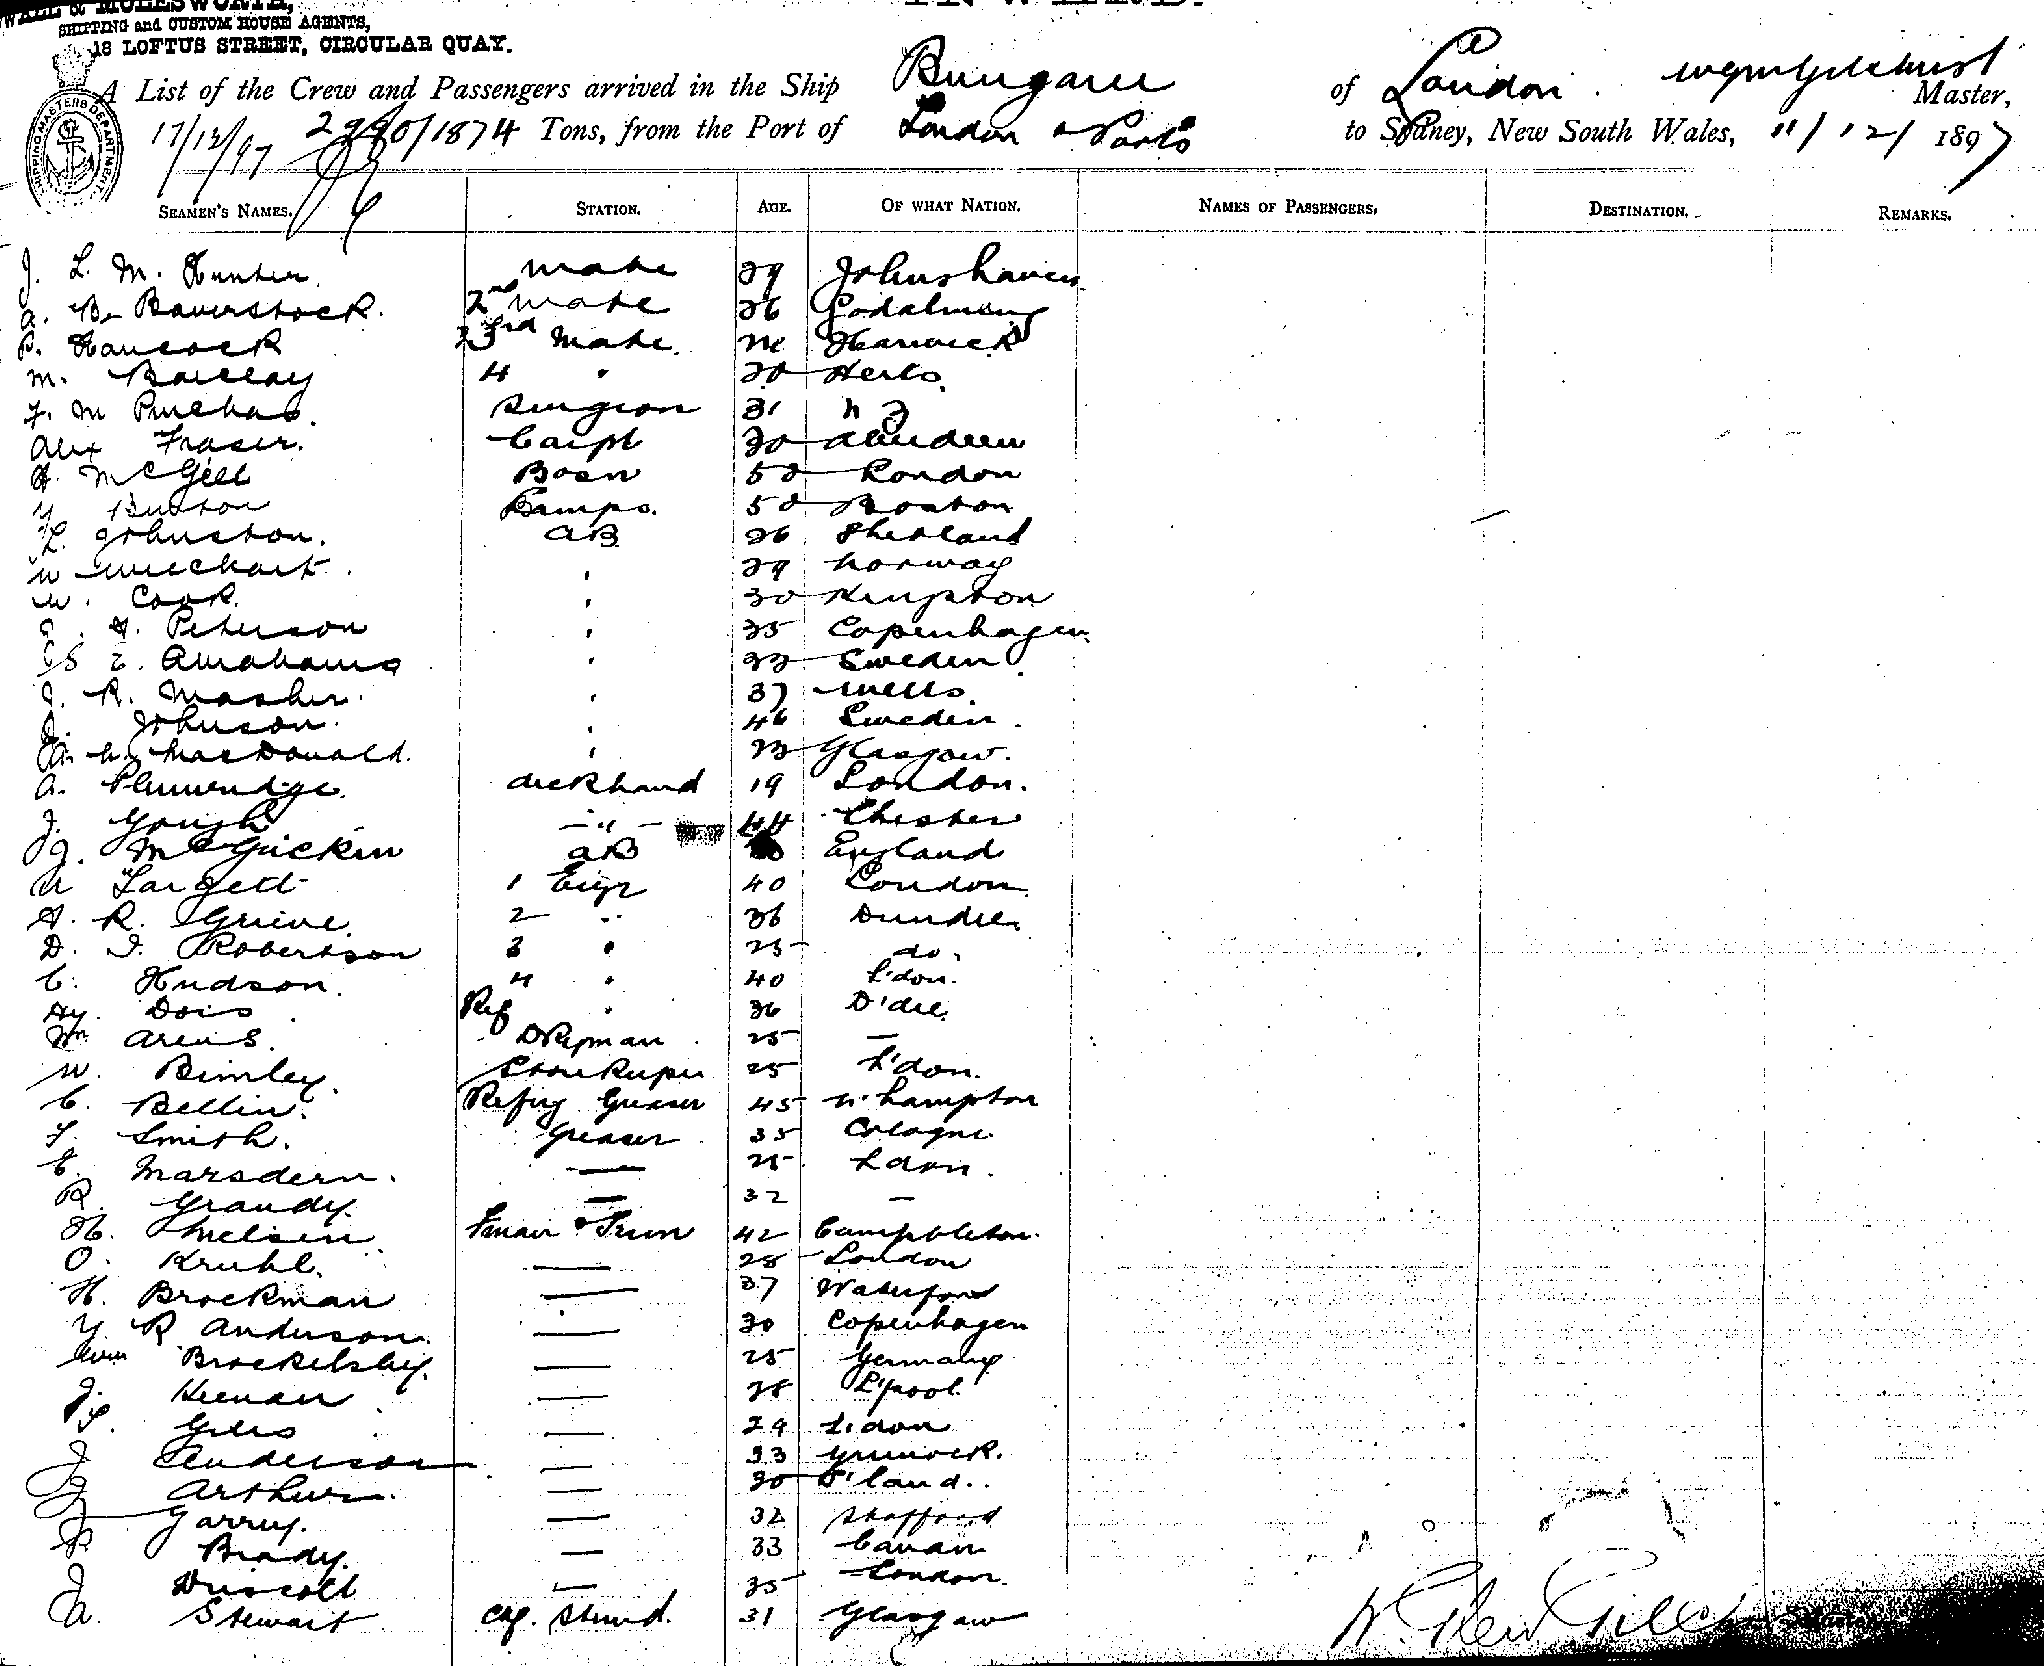 & MOLESWORTH,
SHIPPING and CUSTOM HOUSE AGENTS,
18 LOFTUS STREET, CIRCULAR QUAY.
A List of the Crew and Passengers arrived in the Ship Bungaree of London. W Gilchrist Master,
17/12/97 /1874 Tons, from the Port of London & Ports to Sydney, New South Wales, 11/12/1897
SHIPPING MASTERS DEPARTMENT
SEAMEN'S NAMES. STATION. AGE. OF WHAT NATION. NAMES OF PASSENGERS, DESTINATION. REMARKS.
J. L. M. Hunter. mate 39 Johnshaven
A. B. Baverstock. 2nd mate 26 Godalming
P. Hancock 3rd mate. Harwick
M. Barclay 4 " 20 Herts.
F. M Purchas. Surgeon 31 N Z
Alex Fraser. Carpt 30 Aberdeen
H. McGill Bosn 50 London
Burton Lamps. 50 Boston
L. Johnston. AB 26 Shetland
W Wiechart. " 29 Norway
W. Cook. " 30 Kingston
H. Peterson " 35 Copenhagen
E. Abrahams " 33 Sweden
J. R. Masher. " 37 Wells.
J. Johnson. " 46 Sweden.
MacDonald. " 23 Glasgow.
A. Plumridge. deckhand 19 London.
J. Gough - " - 44 Chester
J. McGuckin AB England
Targett 1 Engr 40 London
A. R. Grieve. 2 " 36 Dundee
D. J. Robertson 3 " 25 do.
C. Hudson. 4 " 40 L'don.
Hy. Dois Ref " 36 D'dee.
Wm Arens. Dkyman 25 —
W. Bimley. Storekeeper 25 L'don.
C. Bellin. Refrig Greaser 45 N'hampton
F. Smith. Greaser 35 Cologne
E. Marsdern. — 25 L'don.
R. Grandy. — 32 —
H. Nielsen. Fman & Trim 42 Campbleton.
O. Kruhl. — 28 London
H. Brockman — 37 Waterford
Y. R Anderson. — 30 Copenhagen
Wm Brockelsby. — 25 Germany
J. Keenan — 28 L'pool.
Giles — 29 L'don
J Anderson — 33 Greenock.
J Arthur. — 30 land.
J Garry. — 32 Stafford
P Brady. — 33 Cavan
J Driscoll — 35 London.
A. Stewart Chf. Stewd. 31 Glasgow